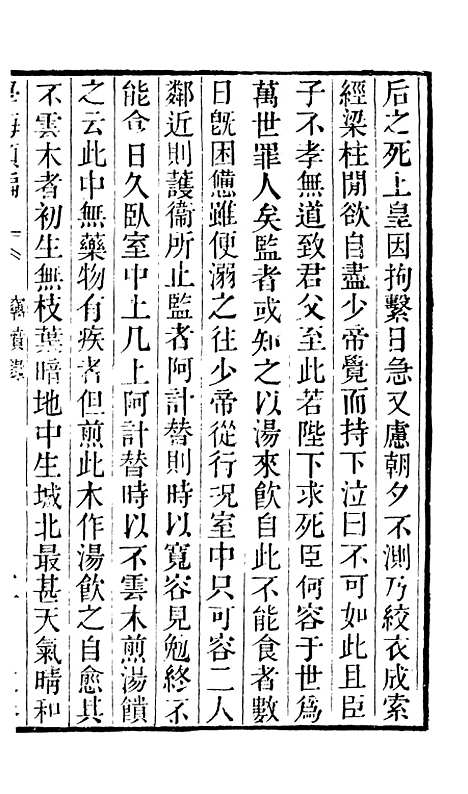 后之死上皇因拘繫日急又慮朝夕不測乃絞衣成索
經梁柱間欲自盡少帝覺而持下泣曰不可如此且臣
子不孝無道致君父至此若陛下求死臣何容于世爲
萬世罪人矣監者或知之以湯來飲自此不能食者數
日旣困憊雖便溺之往少帝從行況室中只可容二人
鄰近則護衞所止監者阿計替則時以寬容見勉終不
能食日久臥室中土几上阿計替時以不雲木煎湯饋
之云此中無藥物有疾者但煎此木作湯飲之自愈其
不雲木者初生無枝葉暗地中生城北最甚天氣晴和
學海類編
竊憤錄